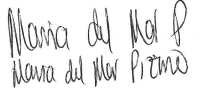 Maria del Mar P
Maria del Mar Pizarro